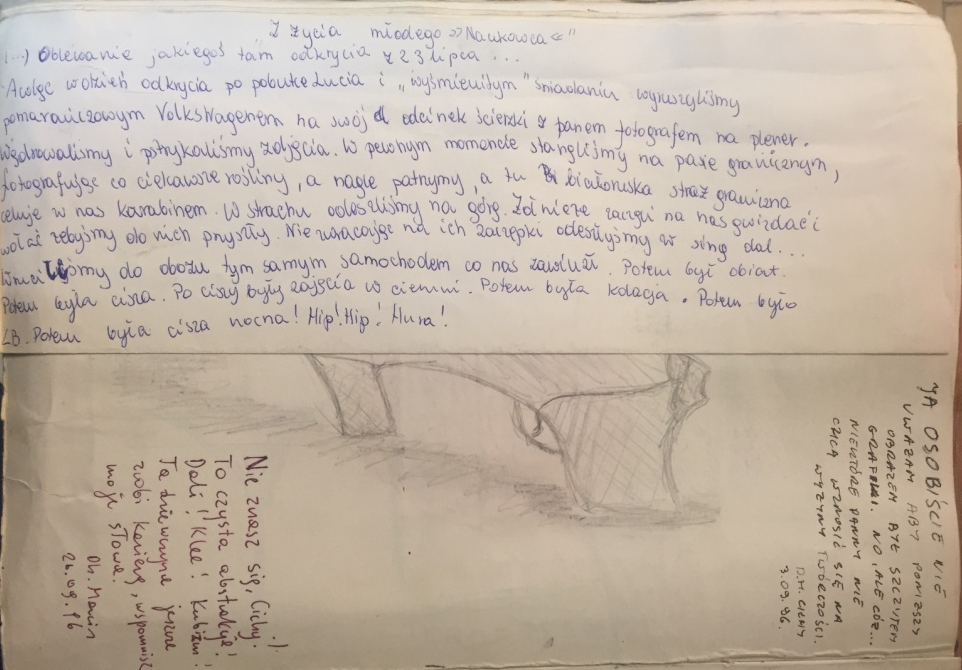 "Z życia młodego »Naukowca«"
(...) Oblewanie jakiegoś tam odkrycia z 23 lipca...
A więc w dzień odkrycia po pobudce Łucia i „wyśmienitym" śniadaniu wyruszyliśmy
pomarańczowym Volkswagenem na swój odcinek ścieżki z panem fotografem na plener.
Wędrowaliśmy i pstrykaliśmy zdjęcia. W pewnym momencie stanęliśmy na pasie granicznym,
fotografując co ciekawsze rośliny, a nagle patrzymy, a tu białoruska straż graniczna
celuje w nas karabinem. W strachu odeszliśmy na górę. Żołnierze zaczęli na nas gwizdać i
wołać żebyśmy do nich przyszły. Nie zwracając na ich zaczepki odeszłyśmy w siną dal...
Wróciłyśmy do obozu tym samym samochodem co nas zawiózł. Potem był obiat.
Potem była cisza. Po ciszy były zajęcia w ciemni. Potem była kolacja. Potem było
ŁB. Potem była cisza nocna! Hip! Hip! Hura!
JA OSOBIŚCIE NIE
UWAŻAM ABY POWYŻSZY
OBRAZEM BYŁ SZCZYTEM
GRAFIKI. NO, ALE CÓŻ...
NIEKTÓRE PANNY NIE
CHCĄ WZNOSIĆ SIĘ NA
WYŻYNY TWÓRCZOŚCI.
D.H. CICHY
3.09.96.
Nie znasz się, Cichy.
To czysta abstrakcja!
Dali! Klee! Kubizm!
Ta dziewczyna jeszcze
zrobi karierę, wspomnisz
moje słowa.
Dh. Marcin
26.09.96